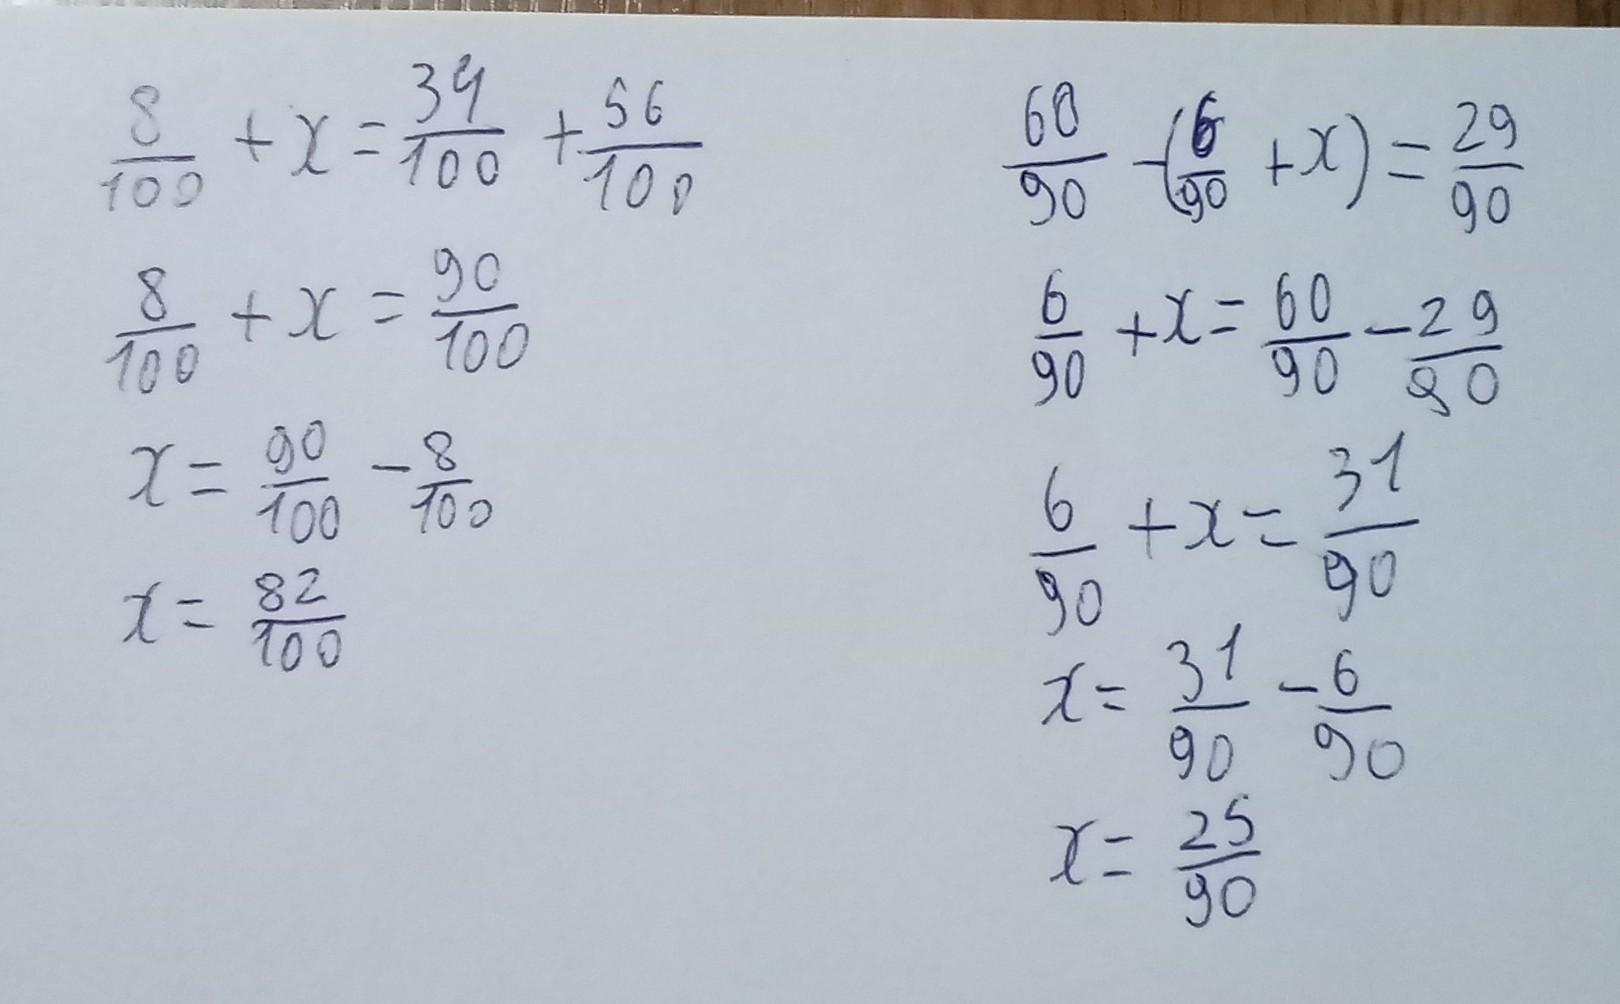 8/100 + x = 34/100 + 56/100
8/100 + x = 90/100
x = 90/100 - 8/100
x = 82/100
60/90 - (6/90 + x) = 29/90
6/90 + x = 60/90 - 29/90
6/90 + x = 31/90
x = 31/90 - 6/90
x = 25/90